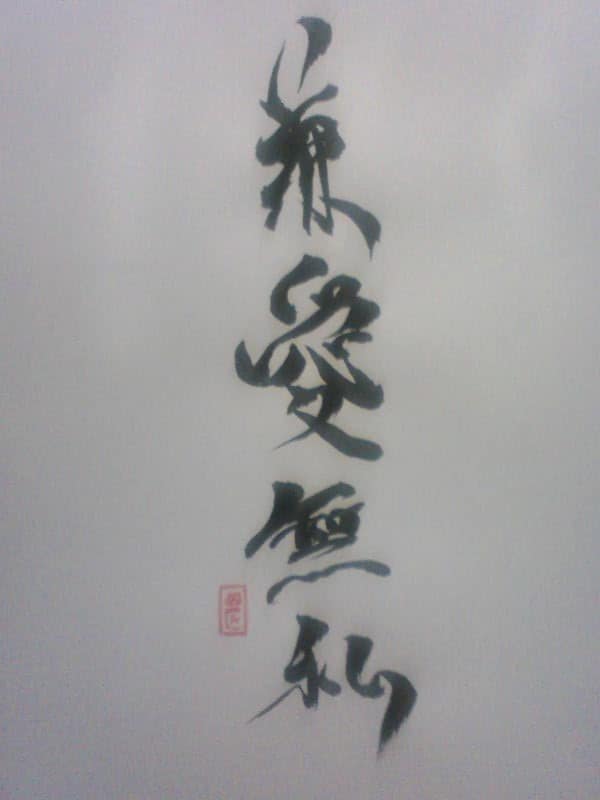 兼愛無私